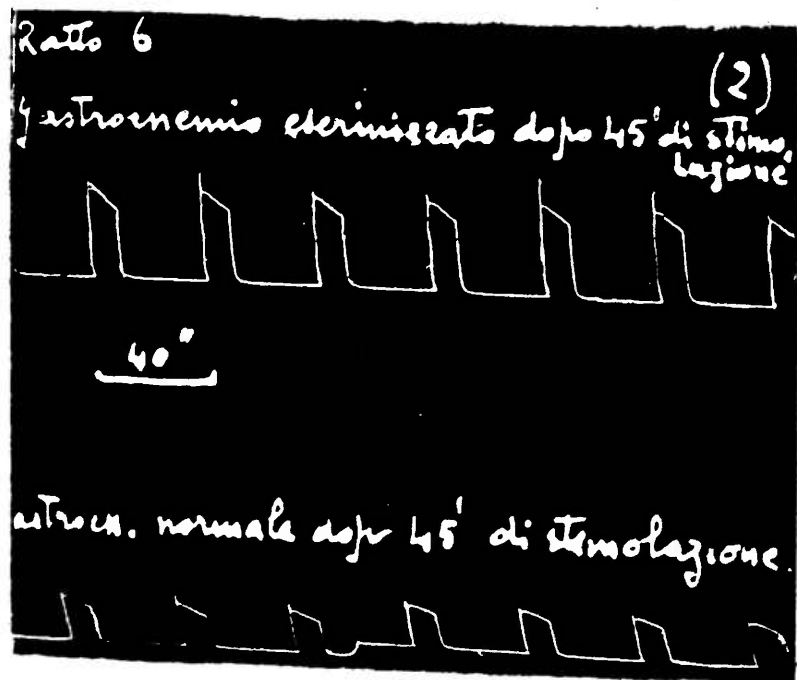 Ratto 6
(2)
Gastrocnemio eserinizzato dopo 45' di stimo.
lazione
40"
astrocn. normale dopo 45' di stimolazione.